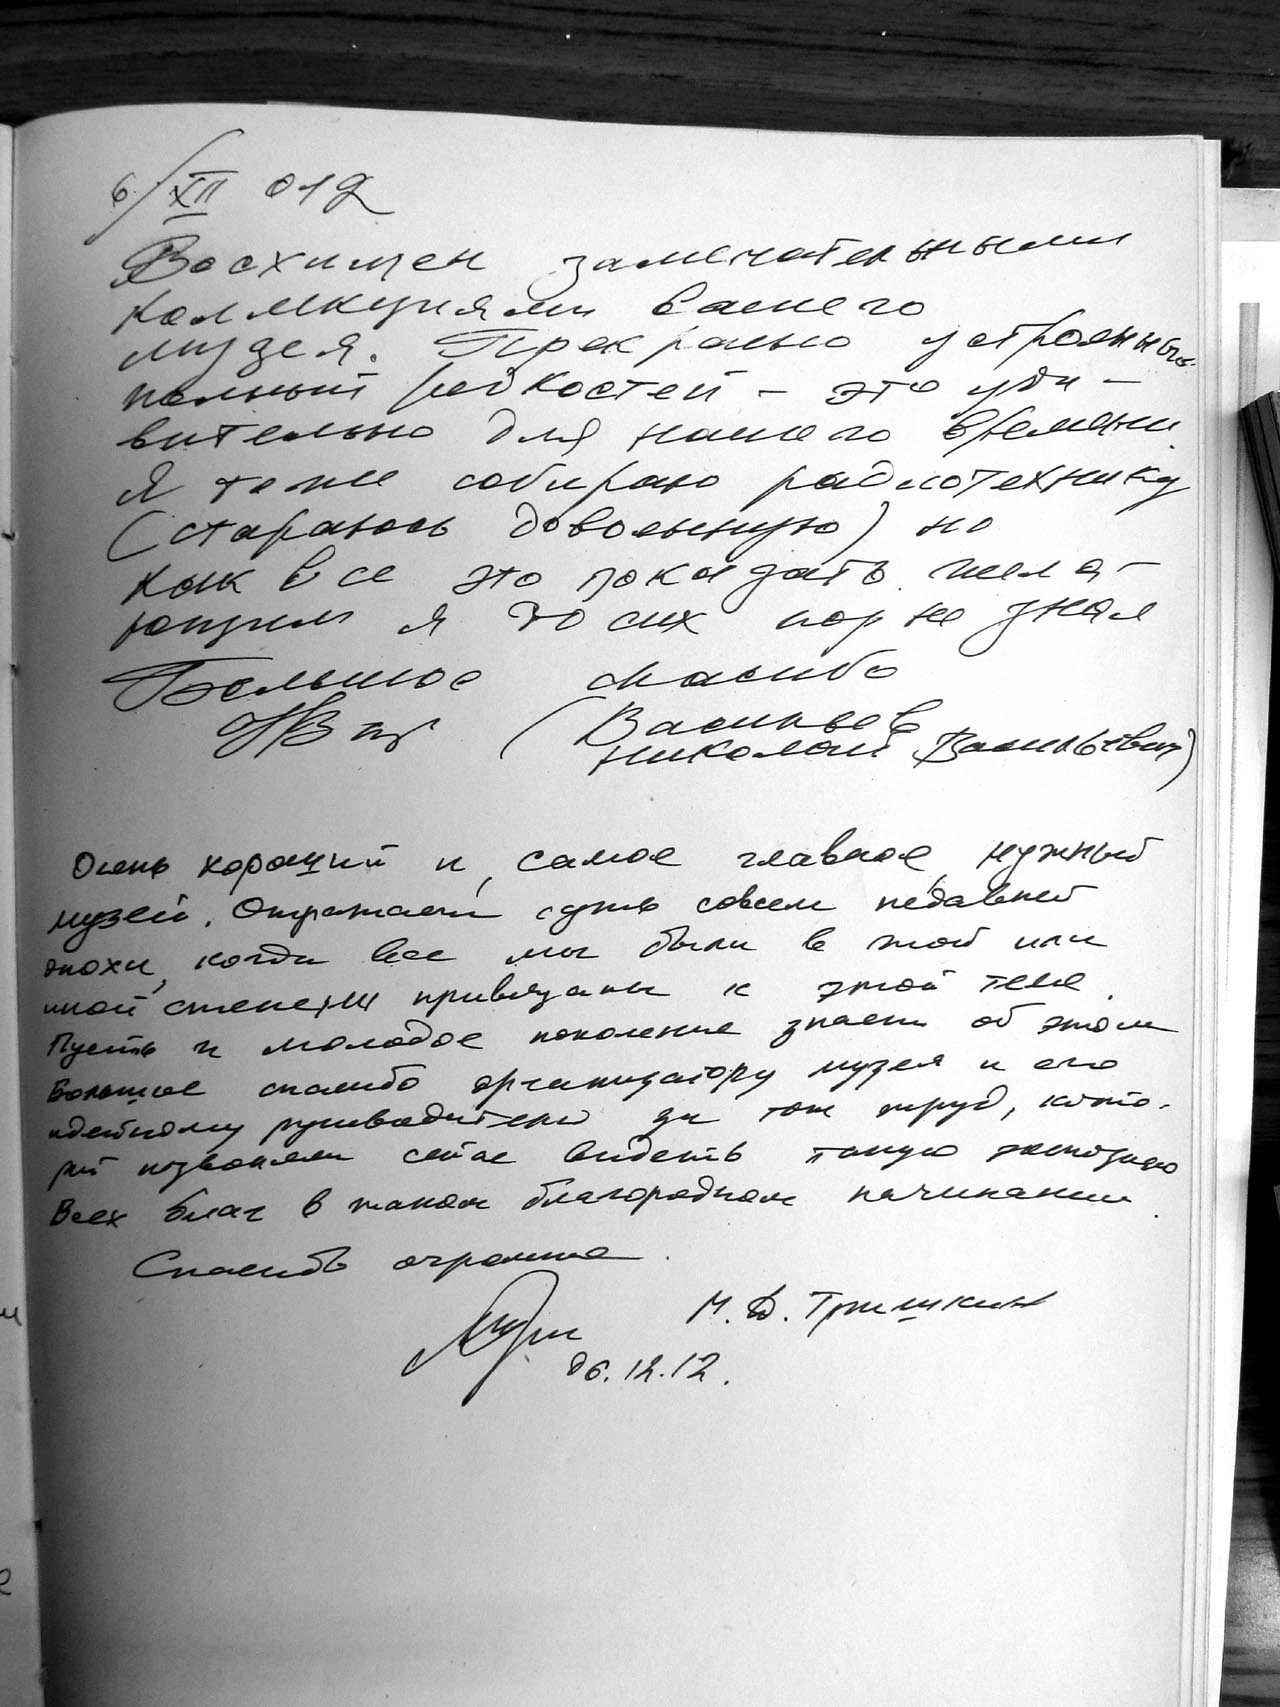 6/XII 012
Восхищен замечательными
коллекциями вашего
музея. Прекрасно устроенный,
полный редкостей – это уди-
вительно для нашего времени.
Я тоже собираю радиотехнику
(стараюсь довоенную) но
как все это показать жела-
ющим я до сих пор не знал
Большое спасибо
(Васильев
Николай Васильевич)
Очень хороший и, самое главное, нужный
музей. Отражает суть совсем недавней
эпохи, когда все мы были в той или
иной степени привязаны к этой теме.
Пусть и молодое поколение знает об этом
Большое спасибо организатору музея и его
идейному руководителю за тот труд, кото-
рый позволил сейчас видеть такую экспозицию
Всех благ в таком благородном начинании.
Спасибо огромное.
М. Д. Тришкин
06.12.12.